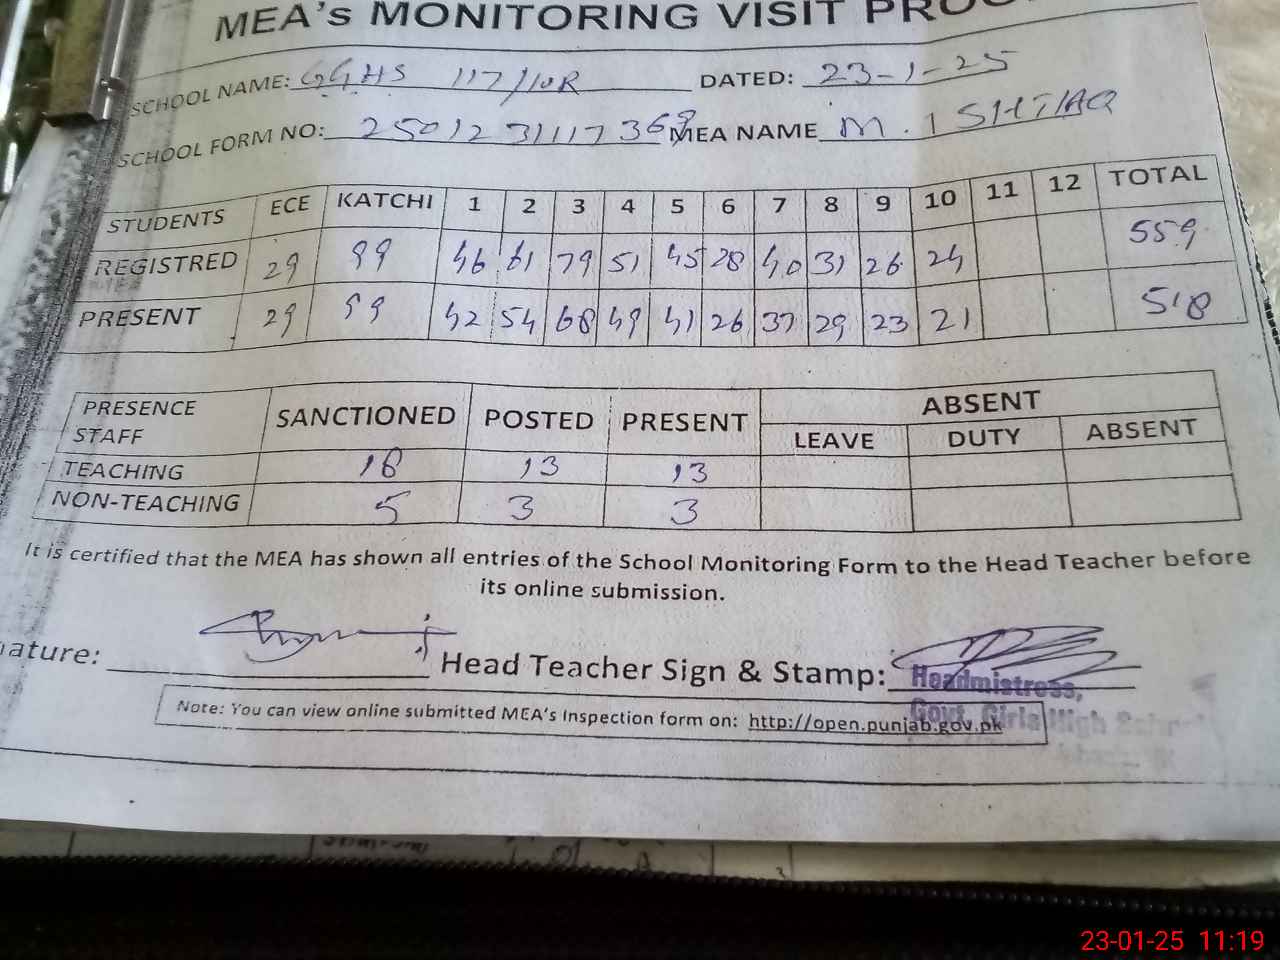 MEA's MONITORING VISIT PRO
SCHOOL NAME: GGHS 117/10R DATED: 23-1-25
SCHOOL FORM NO: 2501231117369 MEA NAME M. ISHTIAQ
STUDENTS ECE KATCHI 1 2 3 4 5 6 7 8 9 10 11 12 TOTAL
REGISTRED 29 99 46 61 79 51 45 28 40 31 26 24 559
PRESENT 29 99 42 54 68 49 41 26 37 29 23 21 518
PRESENCE STAFF SANCTIONED POSTED PRESENT ABSENT
LEAVE DUTY ABSENT
TEACHING 18 13 13
NON-TEACHING 5 3 3
It is certified that the MEA has shown all entries of the School Monitoring Form to the Head Teacher before
its online submission.
nature: Head Teacher Sign & Stamp:
Headmistress,
Govt. Girls High
Note: You can view online submitted MEA's Inspection form on: http://open.punjab.gov.pk
23-01-25 11:19